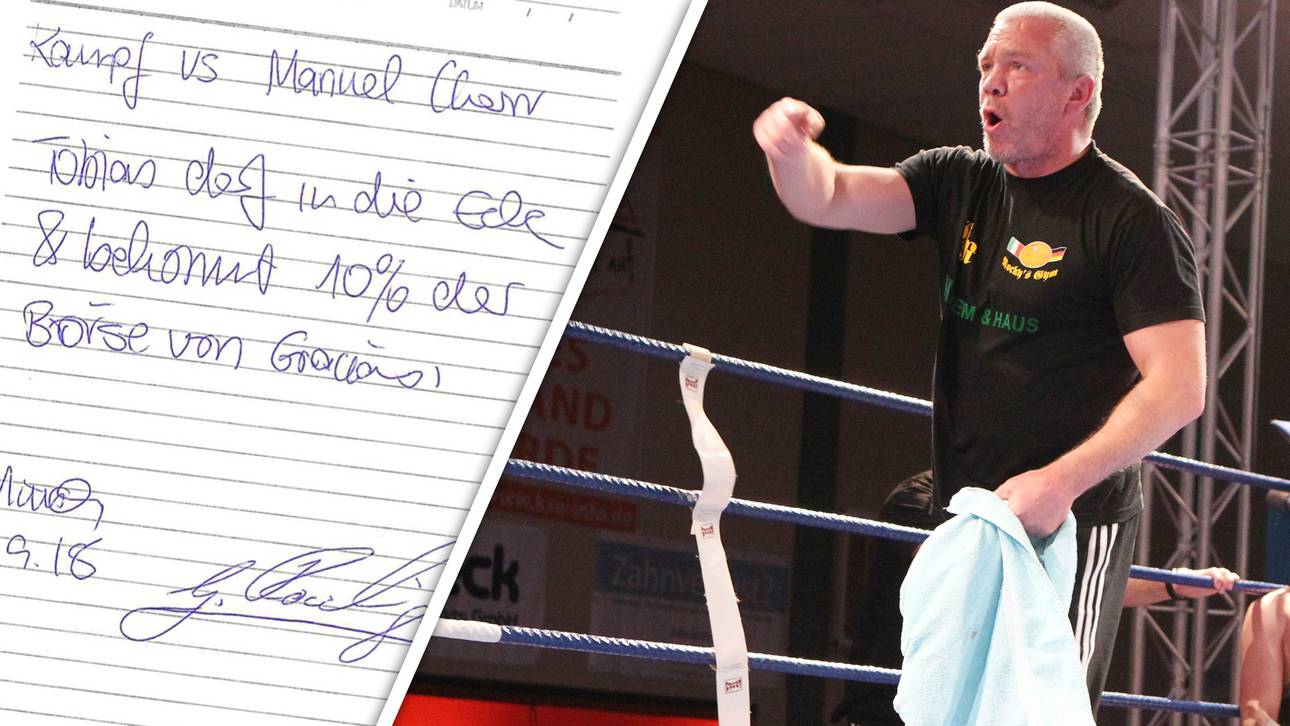 DATUM / /
Kampf vs Manuel Charr
Tobias darf in die Ecke
& bekommt 10% der
Börse von Graciano!
9.18
Rocky's Gym
& HAUS
AND
RDE
www.kza-info.de
ck
GmbH
Zahnve